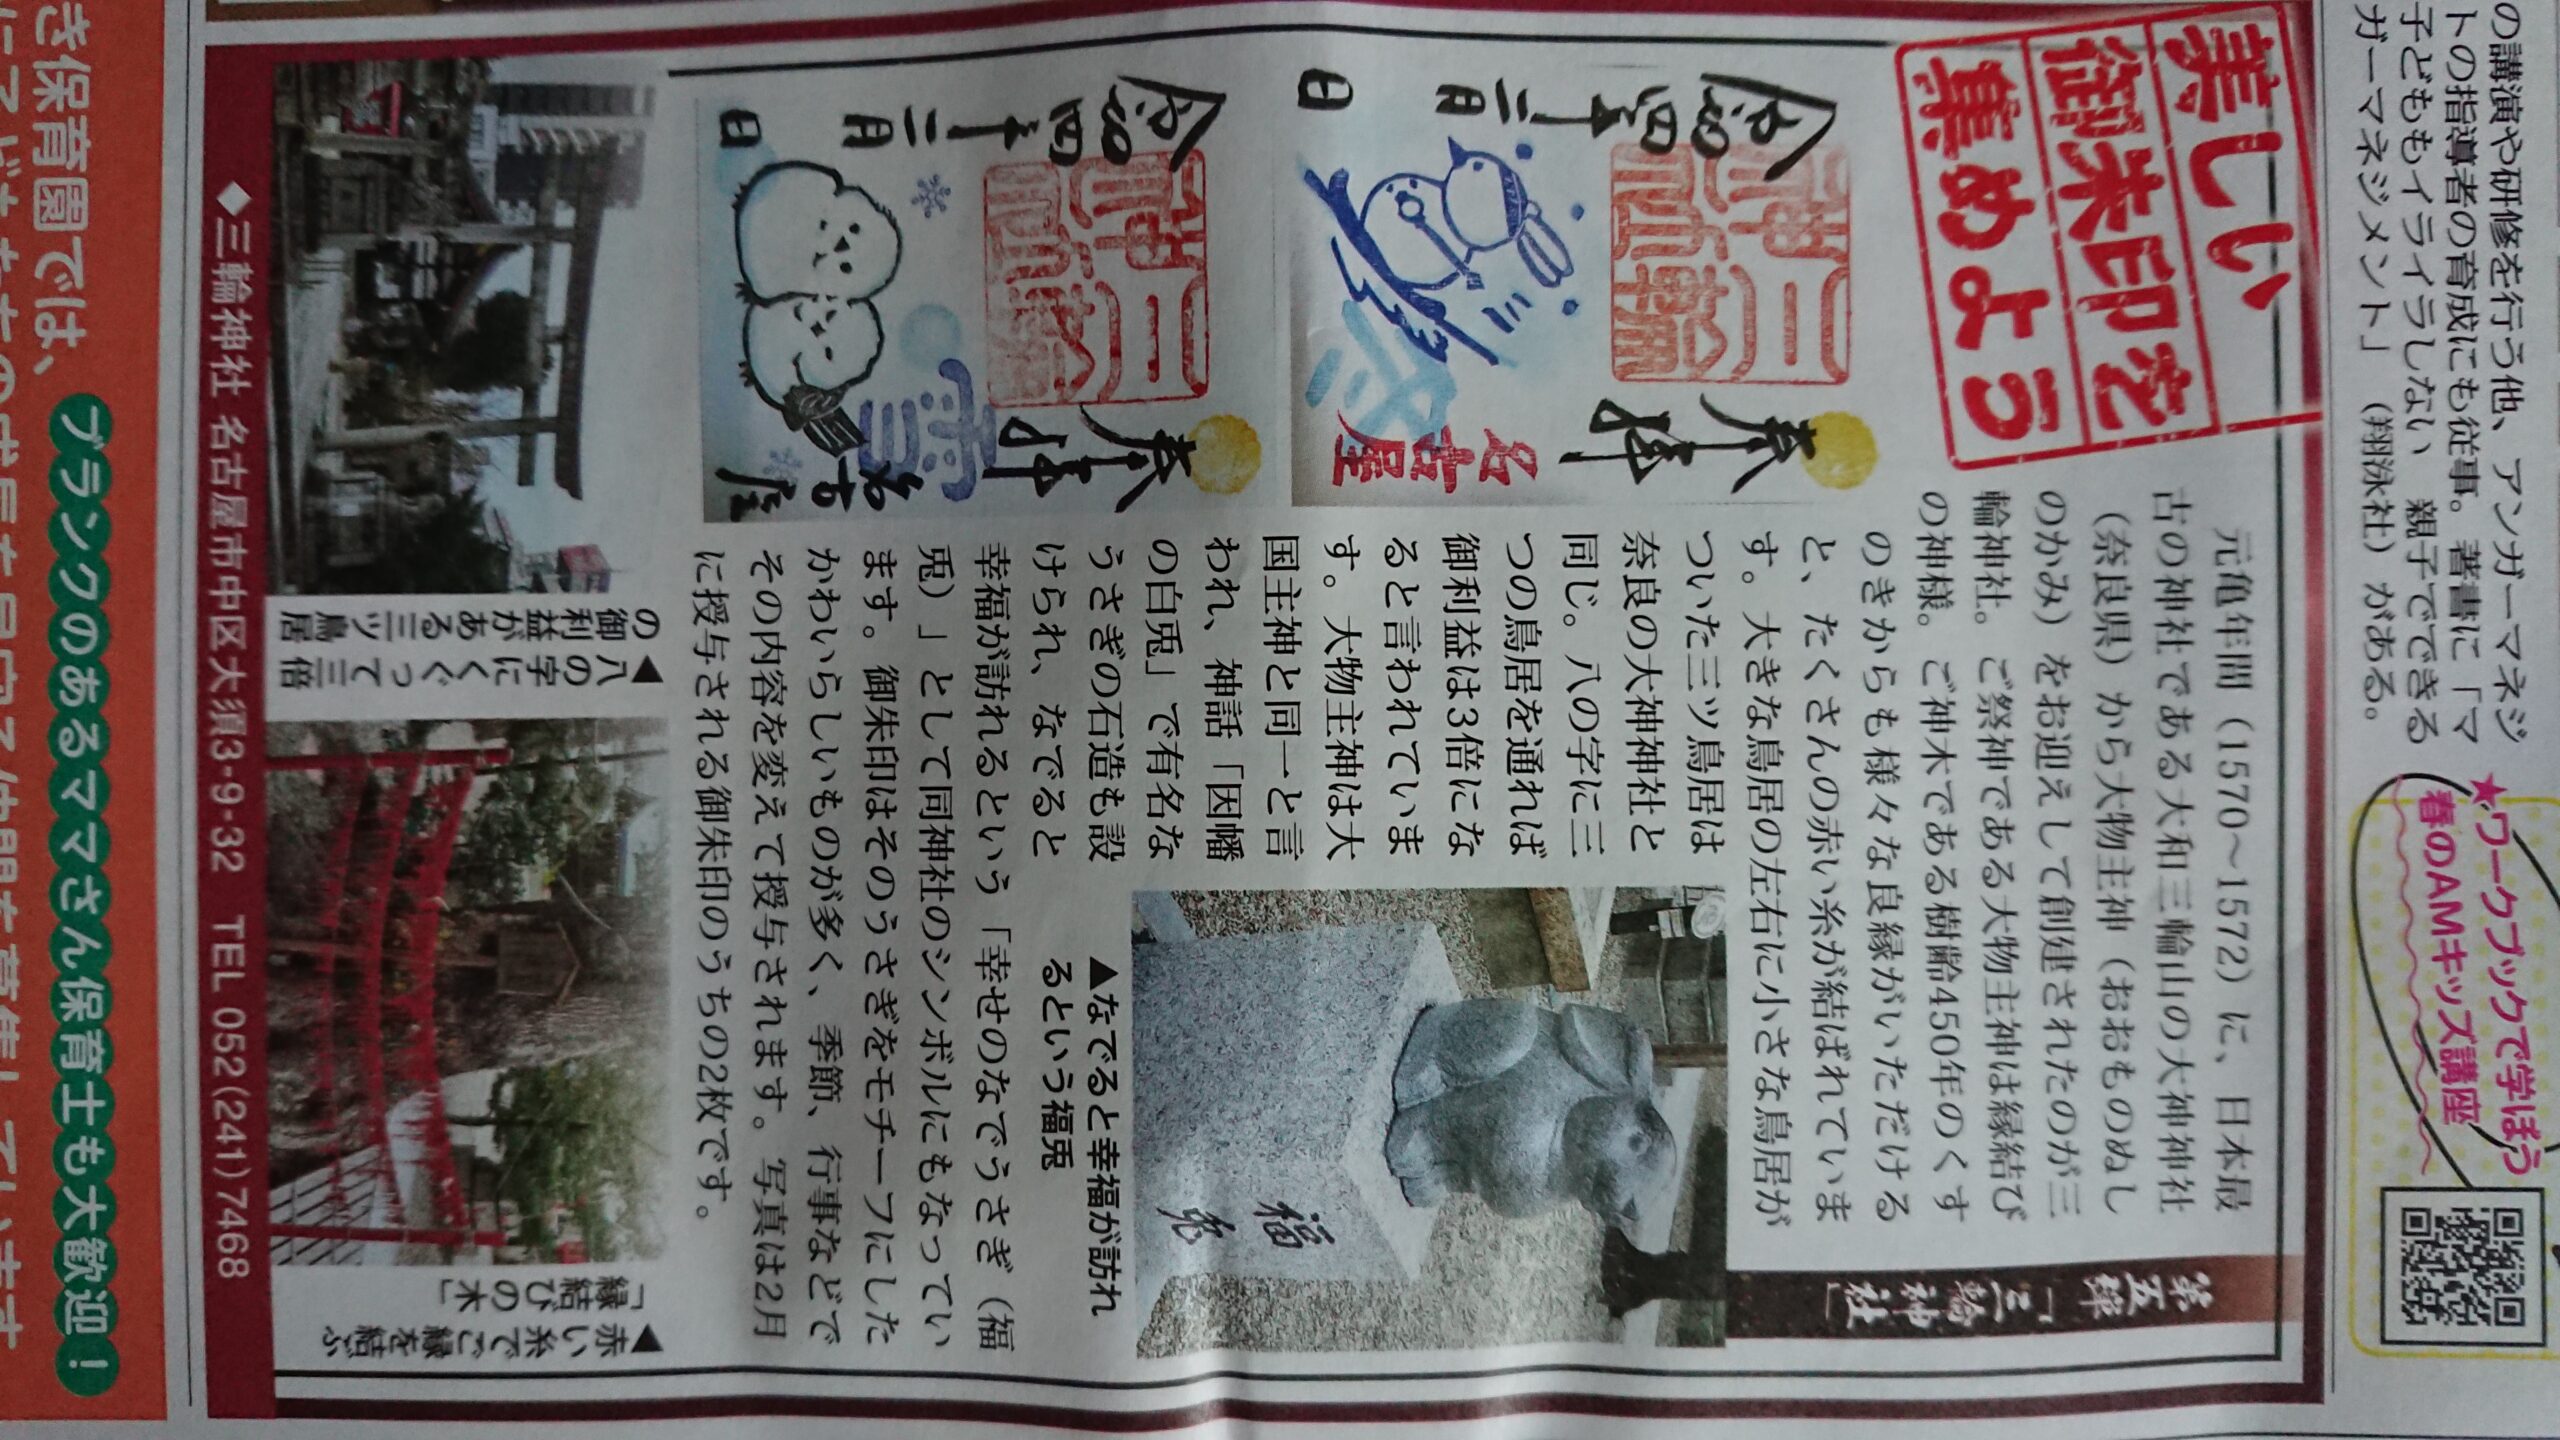 の講演や研修を行う他、アンガーマネジ
トの指導者の育成にも従事。著書に「マ
子どももイライラしない　親子でできる
ガーマネジメント」（翔泳社）がある。
★ワークブックで学ぼう
春のAMキッズ講座
美しい
御朱印を
集めよう
第五弾
「三輪神社」
元亀年間（1570～1572）に、日本最
古の神社である大和三輪山の大神神社
（奈良県）から大物主神（おおものぬし
のかみ）をお迎えして創建されたのが三
輪神社。ご祭神である大物主神は縁結び
の神様。ご神木である樹齢450年のくす
のきからも様々な良縁がいただける
と、たくさんの赤い糸が結ばれていま
す。大きな鳥居の左右に小さな鳥居が
ついた三ツ鳥居は
奈良の大神神社と
同じ。八の字に三
つの鳥居を通れば
御利益は3倍にな
ると言われていま
す。大物主神は大
国主神と同一と言
われ、神話「因幡
の白兎」で有名な
うさぎの石造も設
けられ、なでると
幸福が訪れるという「幸せのなでうさぎ（福
兎）」として同神社のシンボルにもなってい
ます。御朱印はそのうさぎをモチーフにした
かわいらしいものが多く、季節、行事などで
その内容を変えて授与されます。写真は2月
に授与される御朱印のうちの2枚です。
奉拝
三輪神社
令和四年二月
日
名古屋
奉拝
三輪神社
令和四年二月
日
雪
名古屋
福兎
▲なでると幸福が訪れ
るという福兎
▲八の字にくぐって三倍
の御利益がある三ツ鳥居
▲赤い糸でご縁を結ぶ
「縁結びの木」
◆三輪神社　名古屋市中区大須3-9-32　TEL 052(241)7468
き保育園では、ブランクのあるママさん保育士も大歓迎！